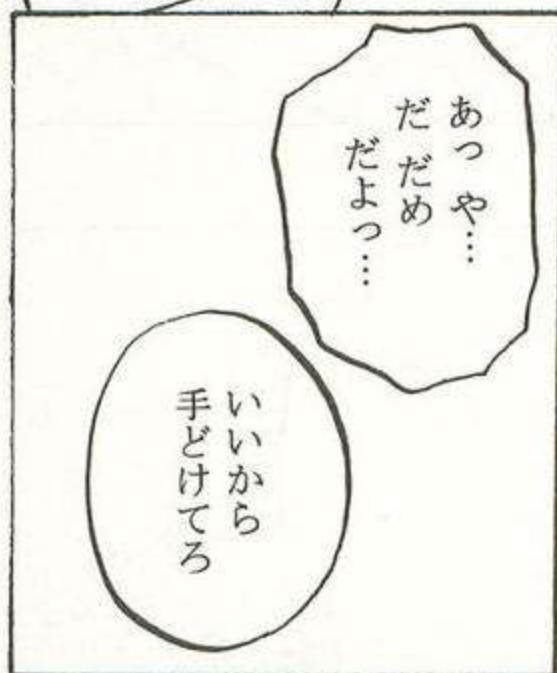 あっ や…
だ だめ
だよっ…
いいから
手どけてろ